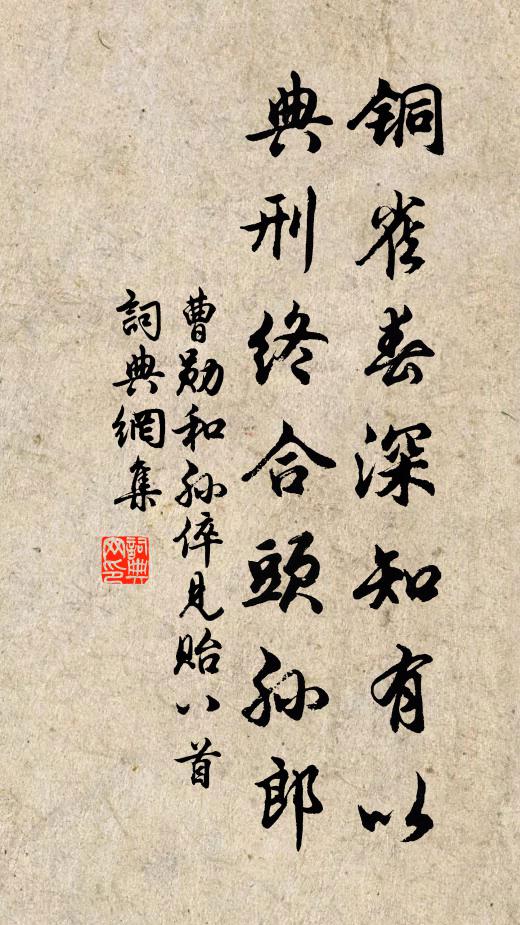 铜雀春深知有以
典刑终合頭孙郎
曹勋和孙倅見贻八首
詞典網集
詞典網印